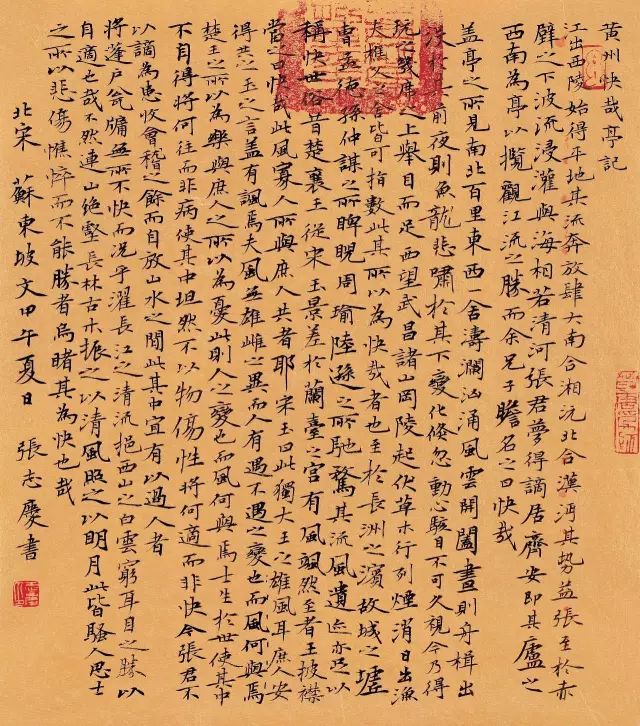 黄州快哉亭記
江出西陵始得平地其流奔放肆大南合湘沅北合漢沔其勢益張至於赤
壁之下波流浸灌與海相若清河張君夢得謫居齊安即其廬之
西南為亭以攬觀江流之勝而余兄子瞻名之曰快哉
盖亭之所見南北百里東西一舍濤瀾洶涌風雲開闔晝則舟楫出
沒於其前夜則魚龍悲嘯於其下變化倏忽動心駭目不可久視今乃得
玩之几席之上舉目而足西望武昌諸山岡陵起伏草木行列煙消日出漁
夫樵父之舍皆可指數此其所以為快哉者也至於長洲之濱故城之墟
曹孟德孫仲謀之所睥睨周瑜陸遜之所馳騖其流風遺迹亦足以
稱快世俗昔楚襄王從宋玉景差於蘭臺之宮有風颯然至者王披襟
當之曰快哉此風寡人所與庶人共者耶宋玉曰此獨大王之雄風耳庶人安
得共之玉之言盖有諷焉夫風無雄雌之異而人有遇不遇之變也而風何與焉
楚王之所以為樂與庶人之所以為憂此則人之變也而風何與焉士生於世使其中
不自得將何往而非病使其中坦然不以物傷性將何適而非快今張君不
以謫為患收會稽之餘而自放山水之間此其中宜有以過人者
將蓬戶甕牖無所不快而況乎濯長江之清流挹西山之白雲窮耳目之勝以
自適也哉不然連山絕壑長林古木振之以清風照之以明月此皆騷人思士
之所以悲傷憔悴而不能勝者烏睹其為快也哉
北宋 蘇東坡文甲午夏日 張志慶書